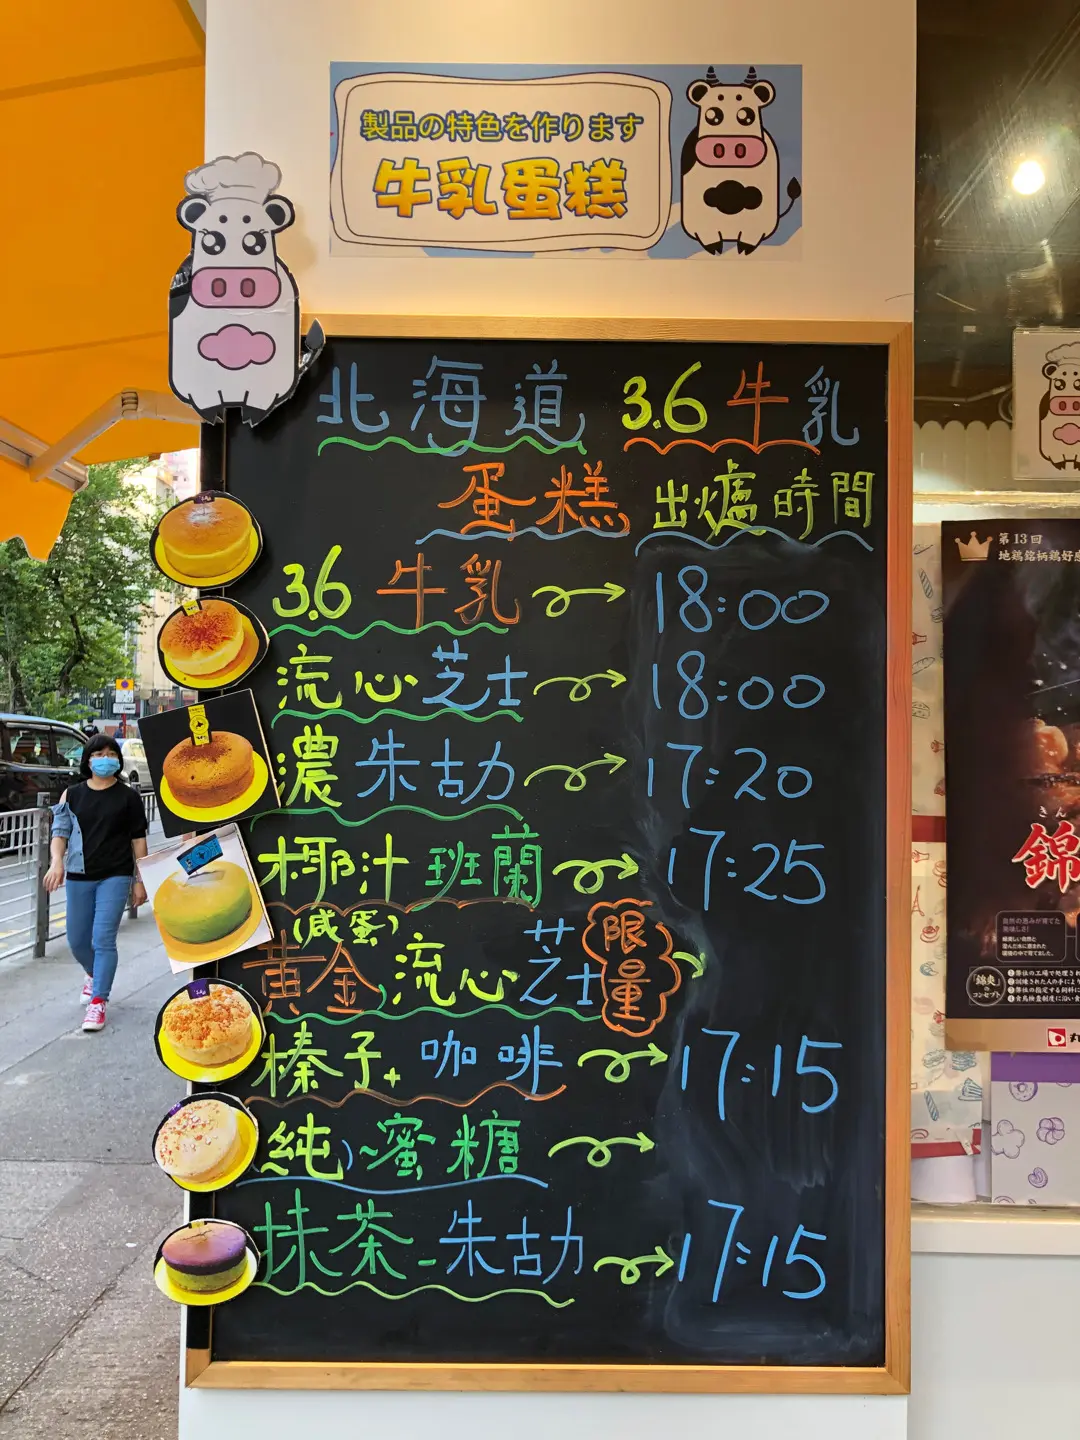 製品の特色を作ります
牛乳蛋糕
北海道 3.6牛乳
蛋糕 出爐時間
3.6 牛乳 → 18:00
流心芝士 → 18:00
濃朱古力 → 17:20
椰汁班蘭 → 17:25
(咸蛋)
黃金流心芝士 限量 →
榛子+咖啡 → 17:15
純~蜜糖 →
抹茶-朱古力 → 17:15
第13回
地鶏銘柄鶏好感
きん
錦
自然の恵みが育てた
美味しさ!
「錦爽」
の
コンセプト